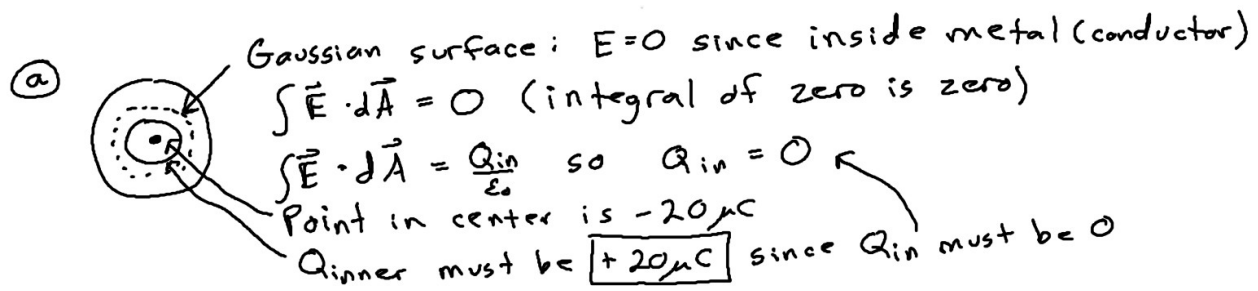 (a) Gaussian surface: E=0 since inside metal (conductor)
∫E⃗·dA⃗ = 0 (integral of zero is zero)
∫E⃗·dA⃗ = Qin/ε₀ so Qin = 0
Point in center is -20μC
Qinner must be +20μC since Qin must be 0